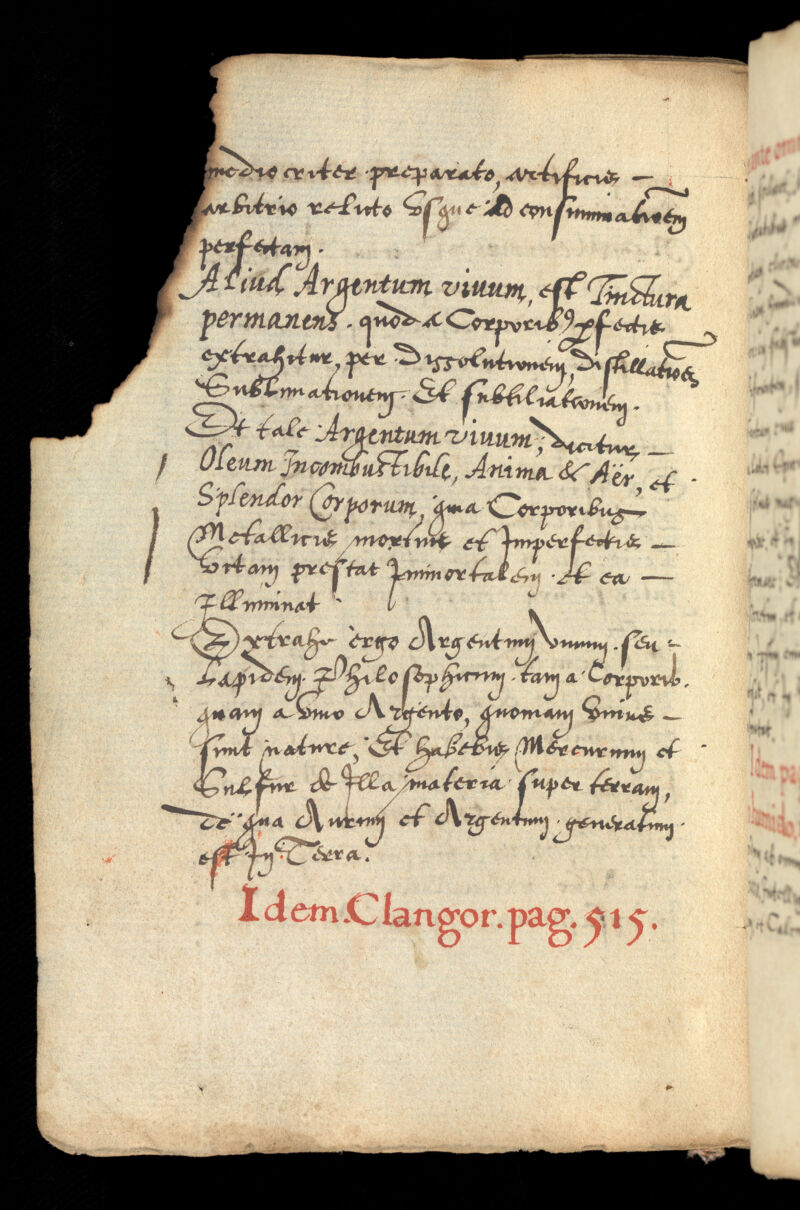 mediocriter preparato, artificis –
arbitrio relicto vsque ad consummationem
perfectam.
Aliud Argentum vivum, est Tinctura
permanens. quod a Corporib9 perfectis
extrahitur, per Dissolutionem, distillationem
Sublimationem. Et subtiliationem.
Et tale Argentum vivum, dicitur –
Oleum Incombustibile, Anima & Aër, et
Splendor Corporum, qua Corporibus
Metallicis mortuis et Imperfectis –
vitam prestat Immortalem. et ea –
Illuminat
Extrahe ergo Argentum vivum. seu
Lapidem. Philosophicum. tam a Corporib.
quam a vivo Argento, quoniam vnius –
sunt nature, Et habebis Mercurium et
Sulfur de Illa materia super terram,
de qua Aurum et Argentum. generatum.
est In Terra.
Idem. Clangor. pag. 515.